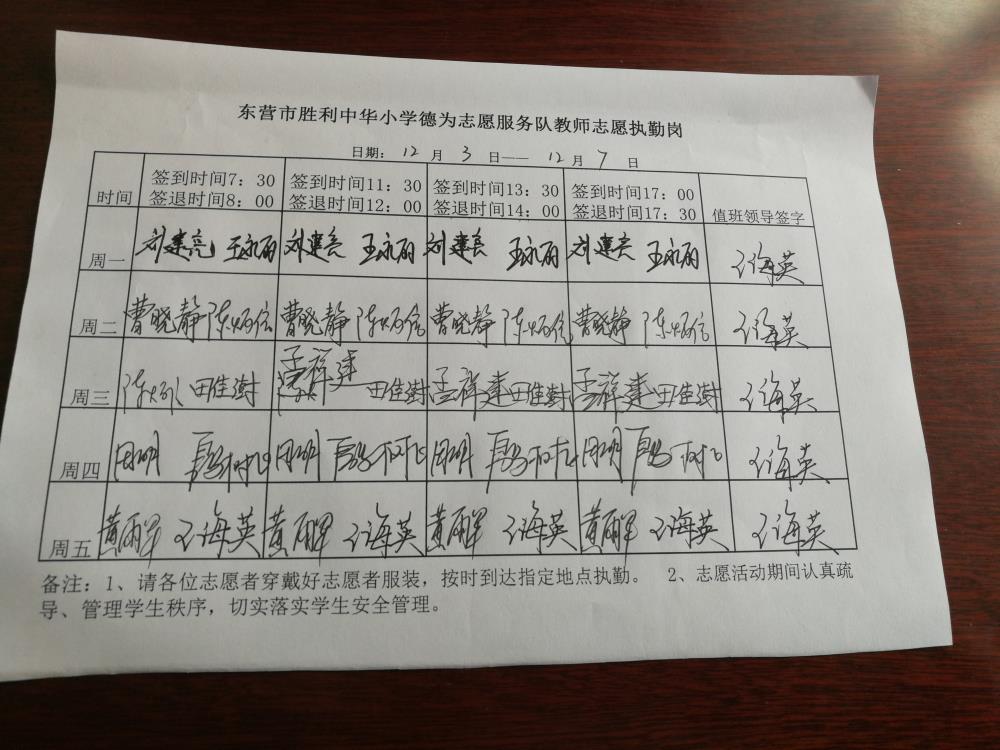 东营市胜利中华小学德为志愿服务队教师志愿执勤岗
日期：12月3日——12月7日
时间 签到时间7：30 签到时间11：30 签到时间13：30 签到时间17：00 值班领导签字
签退时间8：00 签退时间12：00 签退时间14：00 签退时间17：30
周一 刘建亮 王永丽 刘建亮 王永丽 刘建亮 王永丽 刘建亮 王永丽 王海英
周二 曹晓静 曹晓静 曹晓静 曹晓静 王海英
周三 田佳澍 孟祥建 田佳澍 孟祥建 田佳澍 孟祥建 田佳澍 王海英
周四 周明 周明 周明 周明 王海英
周五 黄丽军 王海英 黄丽军 王海英 黄丽军 王海英 黄丽军 王海英 王海英
备注：1、请各位志愿者穿戴好志愿者服装，按时到达指定地点执勤。 2、志愿活动期间认真疏
导、管理学生秩序，切实落实学生安全管理。